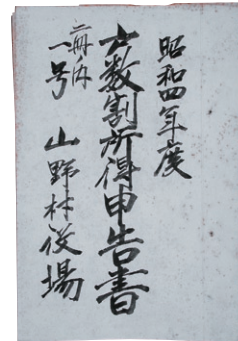 昭和四年度
戸数割所得申告書
二冊ノ内
一号
山野村役場